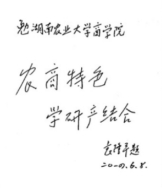 勉湖南农业大学商学院
农商特色
学研产结合
袁隆平题
20-07.6.8.